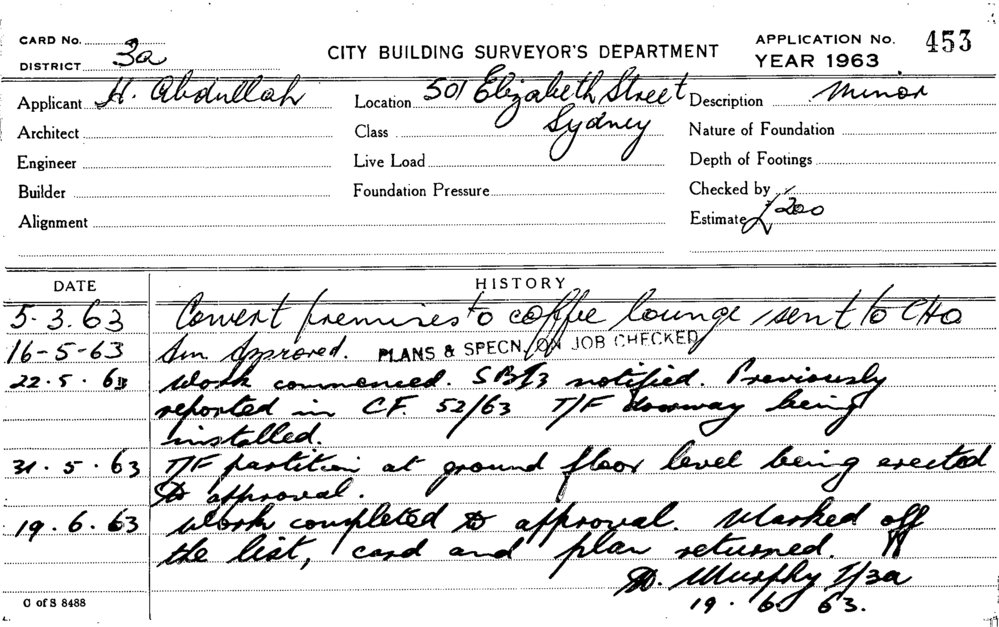 CARD No.
DISTRICT 3a
CITY BUILDING SURVEYOR'S DEPARTMENT
APPLICATION No. 453
YEAR 1963
Applicant H. Abdullah
Location 501 Elizabeth Street
Sydney
Description Minor
Architect
Class
Nature of Foundation
Engineer
Live Load
Depth of Footings
Builder
Foundation Pressure
Checked by
Alignment
Estimate £200
DATE HISTORY
5.3.63 Convert premises to coffee lounge sent to CHO
16-5-63 Approved. PLANS & SPECN. ON JOB CHECKED
22.5.63 Work commenced. notified. Previously
reported in C.F. 52/63 T/F doorway being
installed.
31.5.63 T/F partition at ground floor level being erected
to approval.
19.6.63 Work completed to approval. Marked off
the list, card and plan returned.
D. Murphy I/3a
19.6.63.
C of S 8488